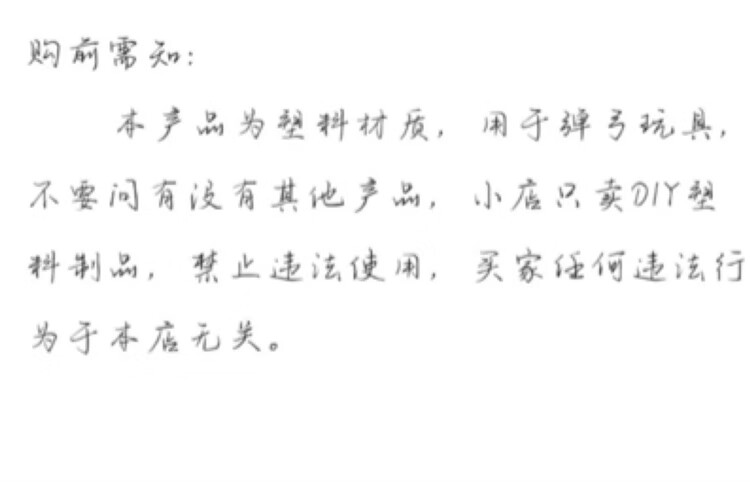 购前需知:
本产品为塑料材质，用于弹弓玩具，
不要问有没有其他产品，小店只卖DIY塑
料制品，禁止违法使用，买家任何违法行
为于本店无关。